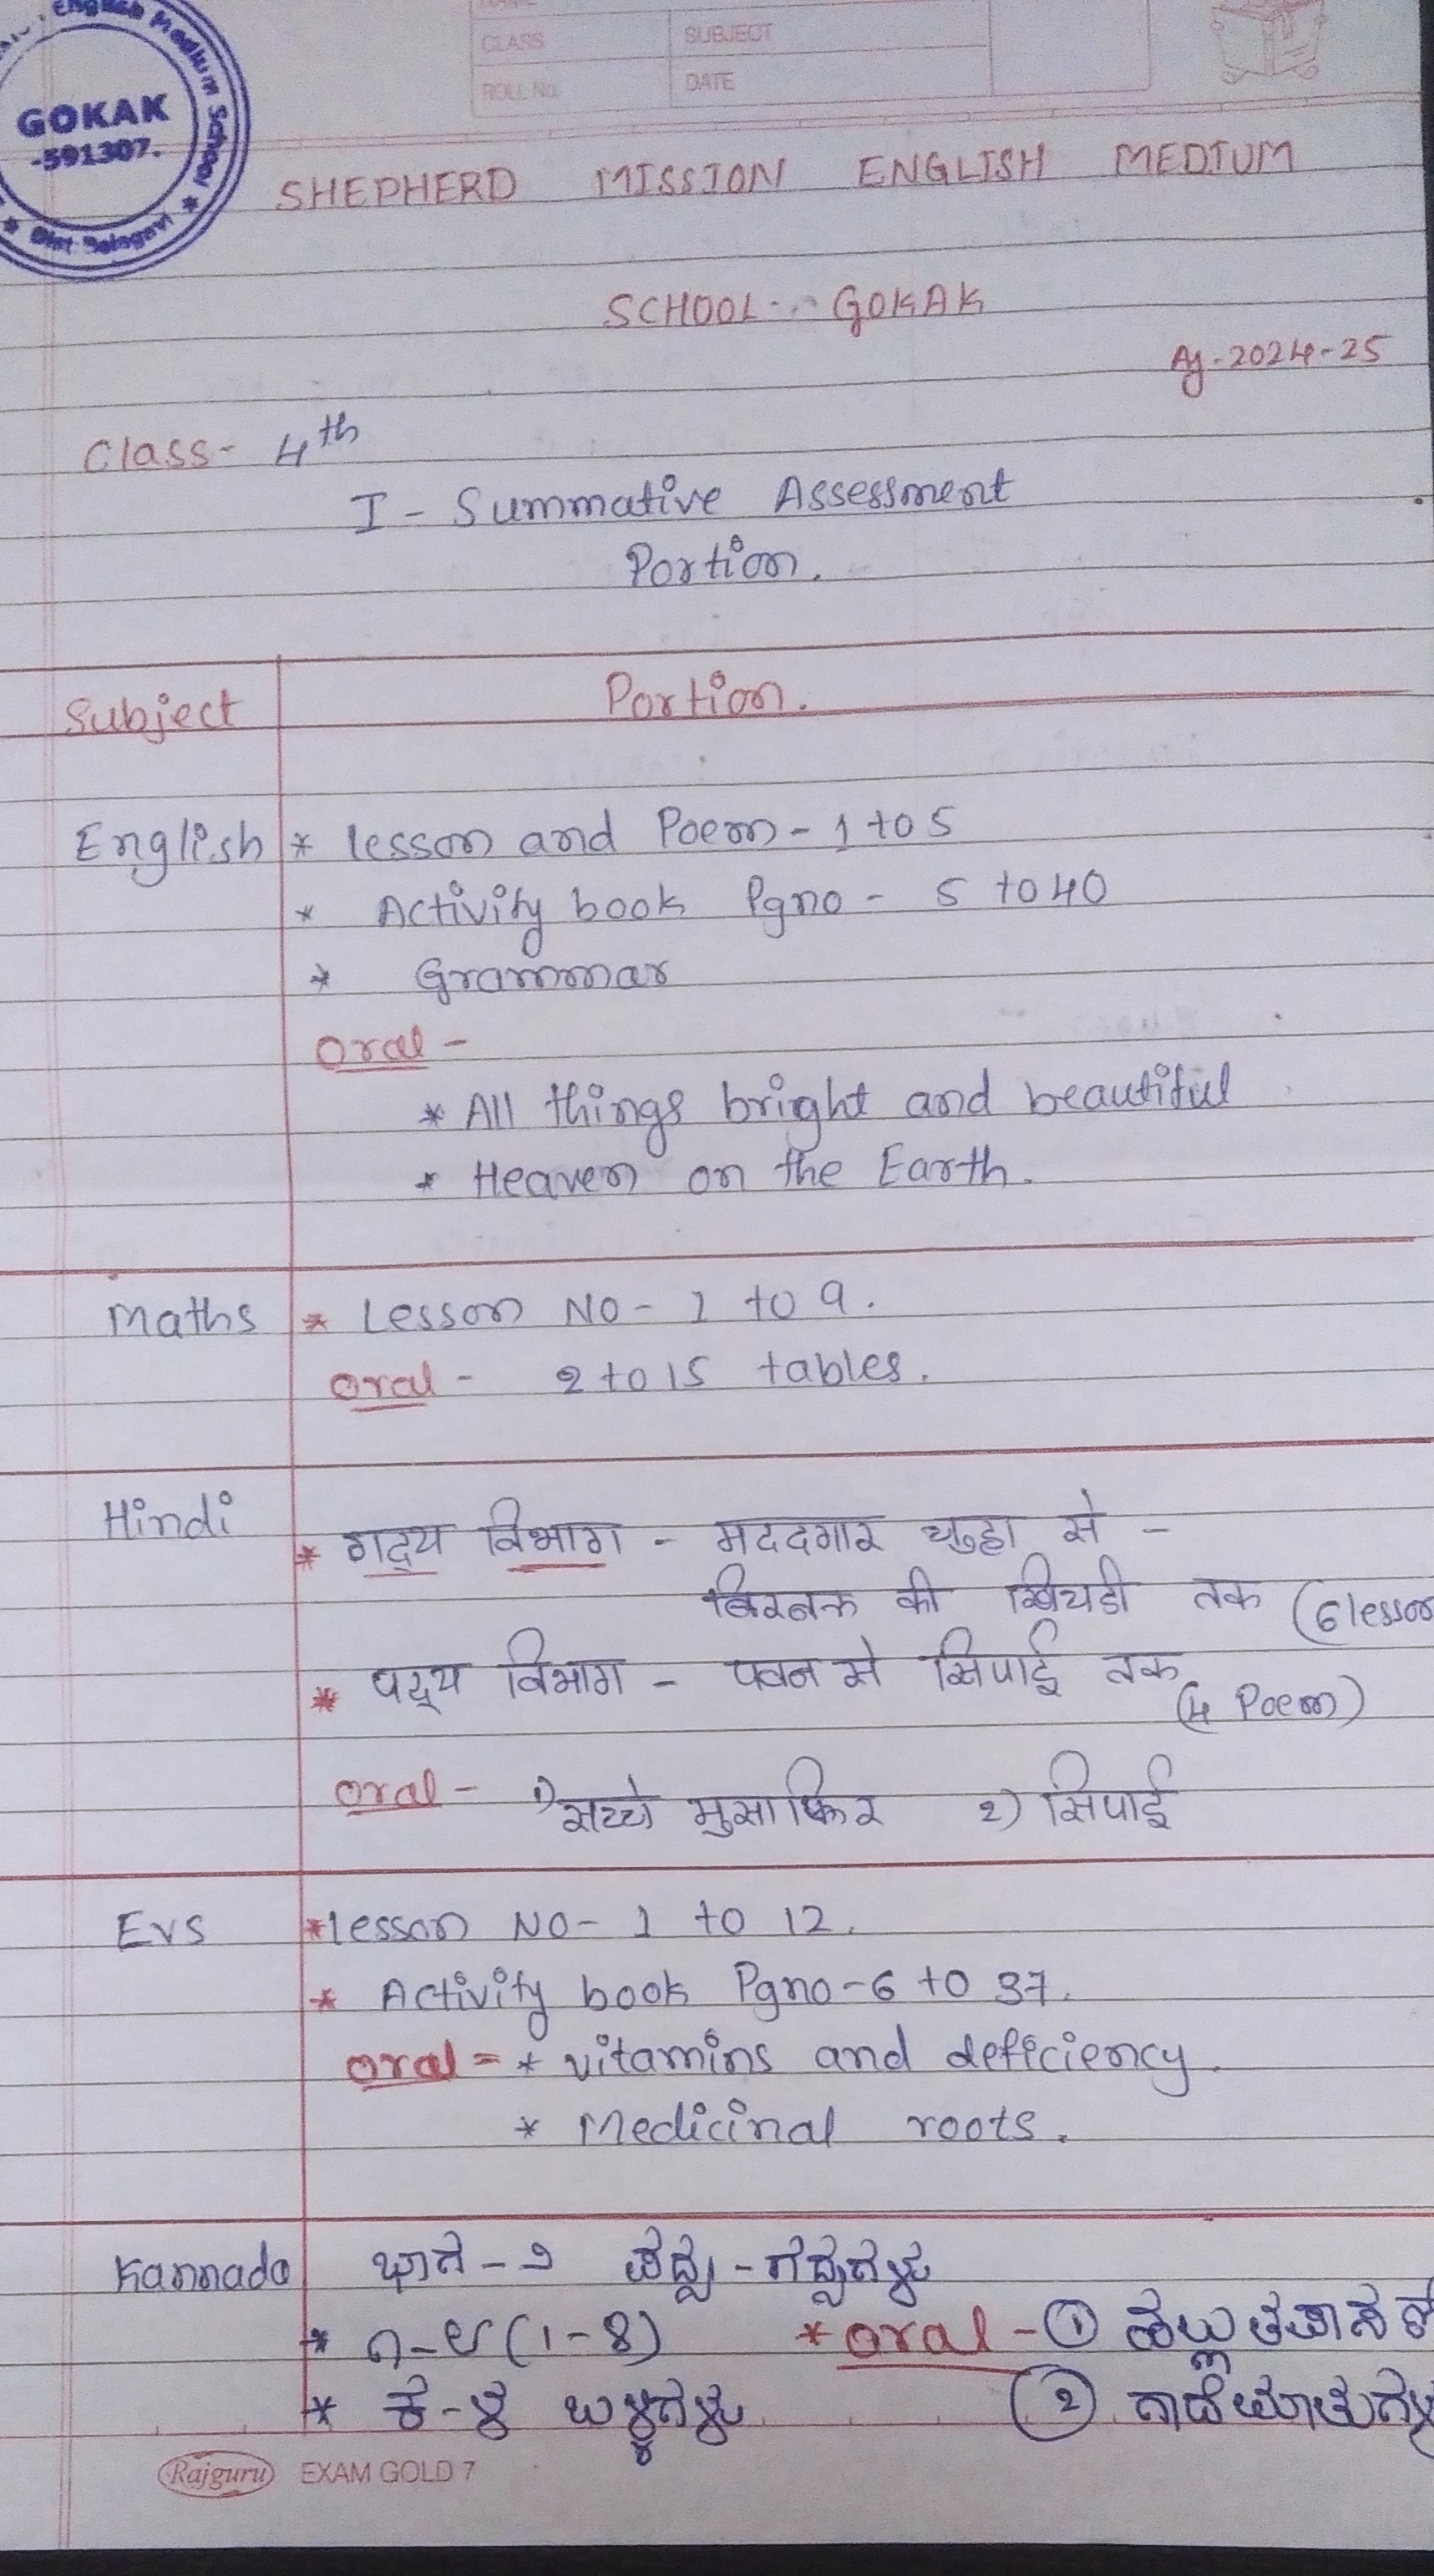 English Medium School
GOKAK
-591307.
Dist. Belagavi
CLASS SUBJECT
ROLL No. DATE
SHEPHERD MISSION ENGLISH MEDIUM
SCHOOL GOKAK
Ay-2024-25
Class- 4th
I - Summative Assessment
Portion.
Subject Portion.
English * lesson and Poem - 1 to 5
* Activity book Pgno - 5 to 40
* Grammar
Oral -
* All things bright and beautiful
* Heaven on the Earth.
Maths * Lesson NO - 1 to 9.
Oral - 2 to 15 tables.
Hindi * गद्य विभाग - मददगार चुहा से -
बिरबल की खिचडी तक (6 lesson
* पद्य विभाग - पवन से सिपाई तक
(4 Poem)
Oral - 1) सच्चे मुसाफिर 2) सिपाई
Evs * lesson NO - 1 to 12.
* Activity book Pgno - 6 to 37.
Oral = * vitamins and defficiency.
* Medicinal roots.
Kannada ಭಾಗ - ೨ ಪದ್ಯ - ಗದ್ಯಗಳು
* ೧-೮ (1-8) * Oral - ①
* ಕ - ಳ ಬಳ್ಳಿಗಳು ② ಗಾದೆಮಾತುಗಳು
Rajguru EXAM GOLD 7